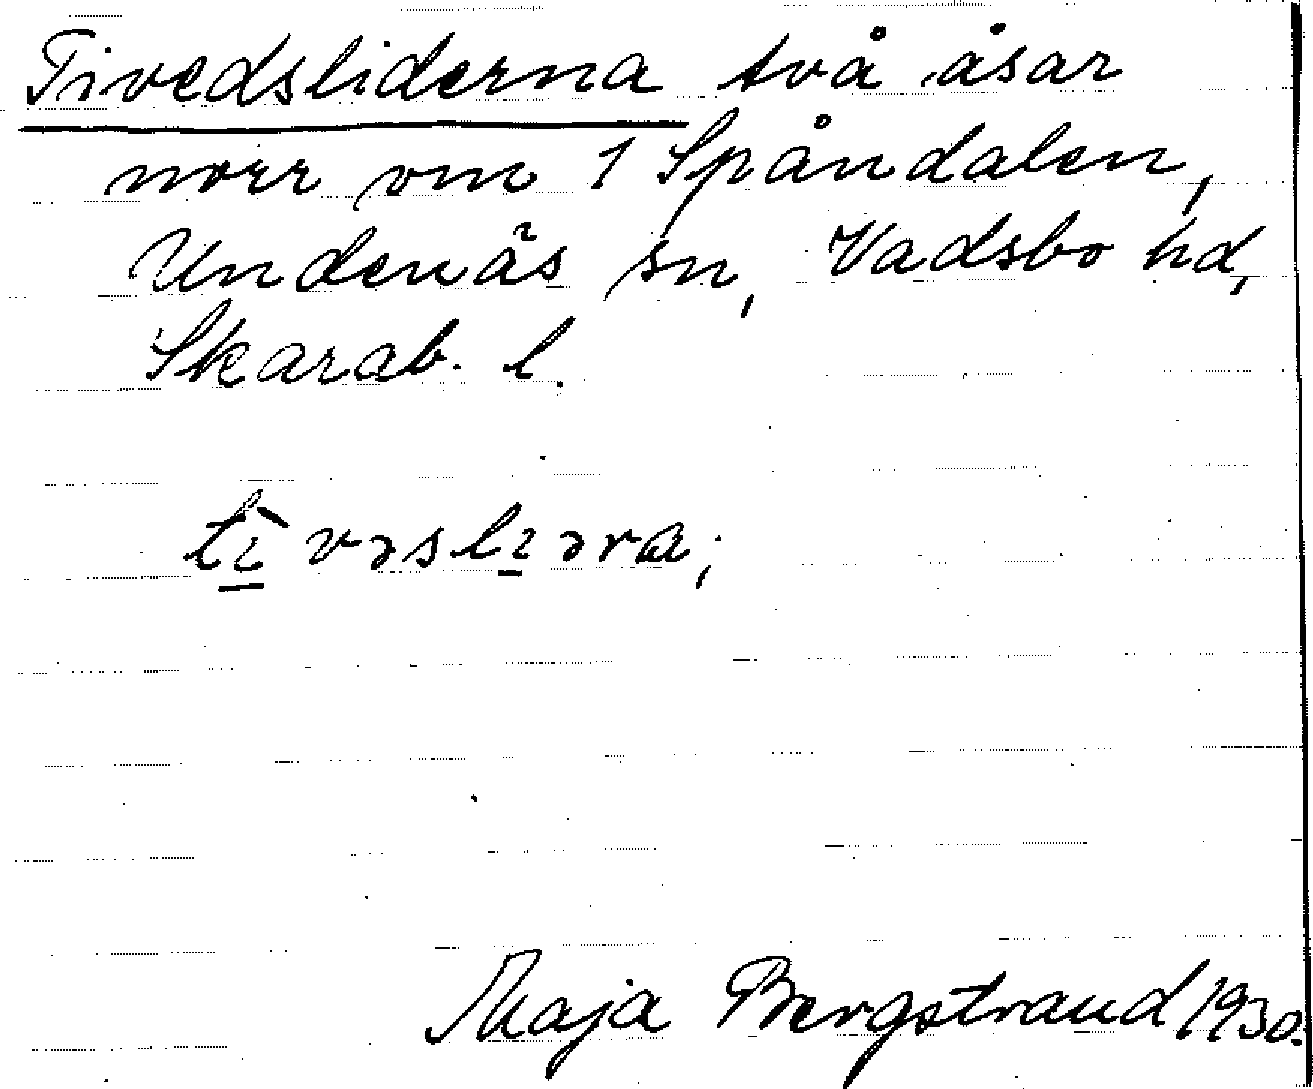 Tivedsliderna två åsar
norr om 1 Spåndalen,
Undenäs sn, Vadsbo hd,
Skarab. l.
tì vəslɩ əra;
Maja Bergstrand 1930.